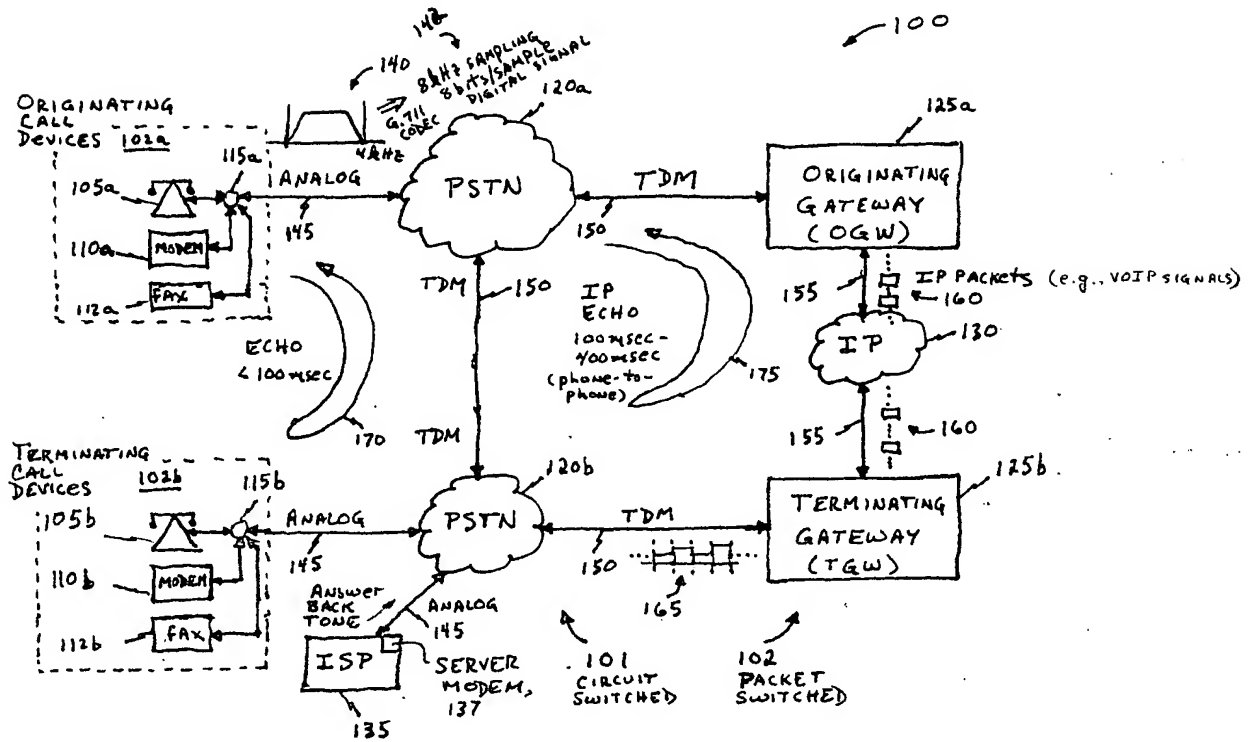 142
100
140
8kHz SAMPLING
8bits/SAMPLE
DIGITAL SIGNAL
G.711
CODEC
4kHz
120a
125a
ORIGINATING
CALL
DEVICES 102a
115a
105a
MODEM
110a
FAX
112a
ANALOG
145
PSTN
TDM
150
ORIGINATING
GATEWAY
(OGW)
155
IP PACKETS (e.g., VOIP SIGNALS)
160
IP
130
TDM
150
IP
ECHO
100msec-
400msec
(phone-to-
phone)
175
ECHO
<100msec
170
TDM
155
160
TERMINATING
CALL
DEVICES 102b
115b
105b
MODEM
110b
FAX
112b
ANALOG
145
120b
PSTN
TDM
150
165
125b
TERMINATING
GATEWAY
(TGW)
ANSWER
BACK
TONE
ANALOG
145
ISP
135
SERVER
MODEM,
137
101
CIRCUIT
SWITCHED
102
PACKET
SWITCHED